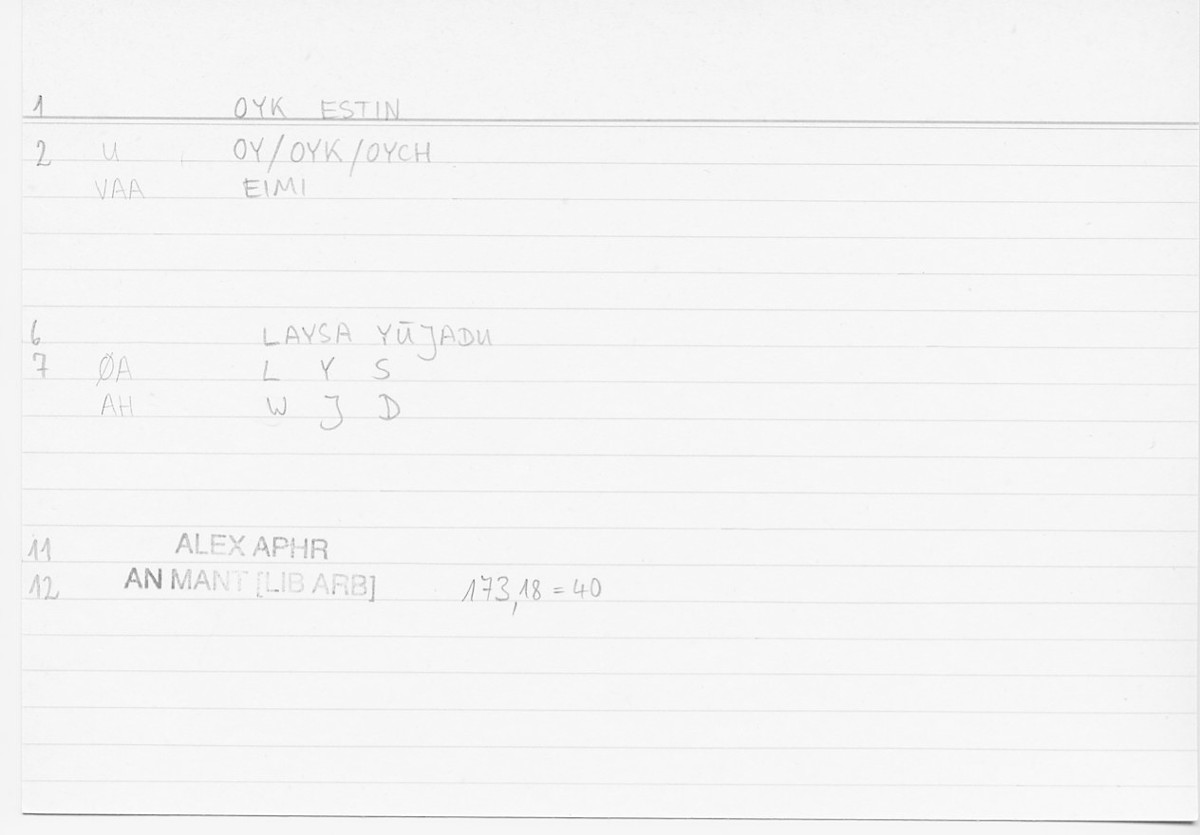 1 OYK ESTIN
2 U OY/OYK/OYCH
VAA EIMI
6 LAYSA YŪJADU
7 ØA L Y S
AH W J D
11 ALEX APHR
12 AN MANT [LIB ARB] 173,18 = 40